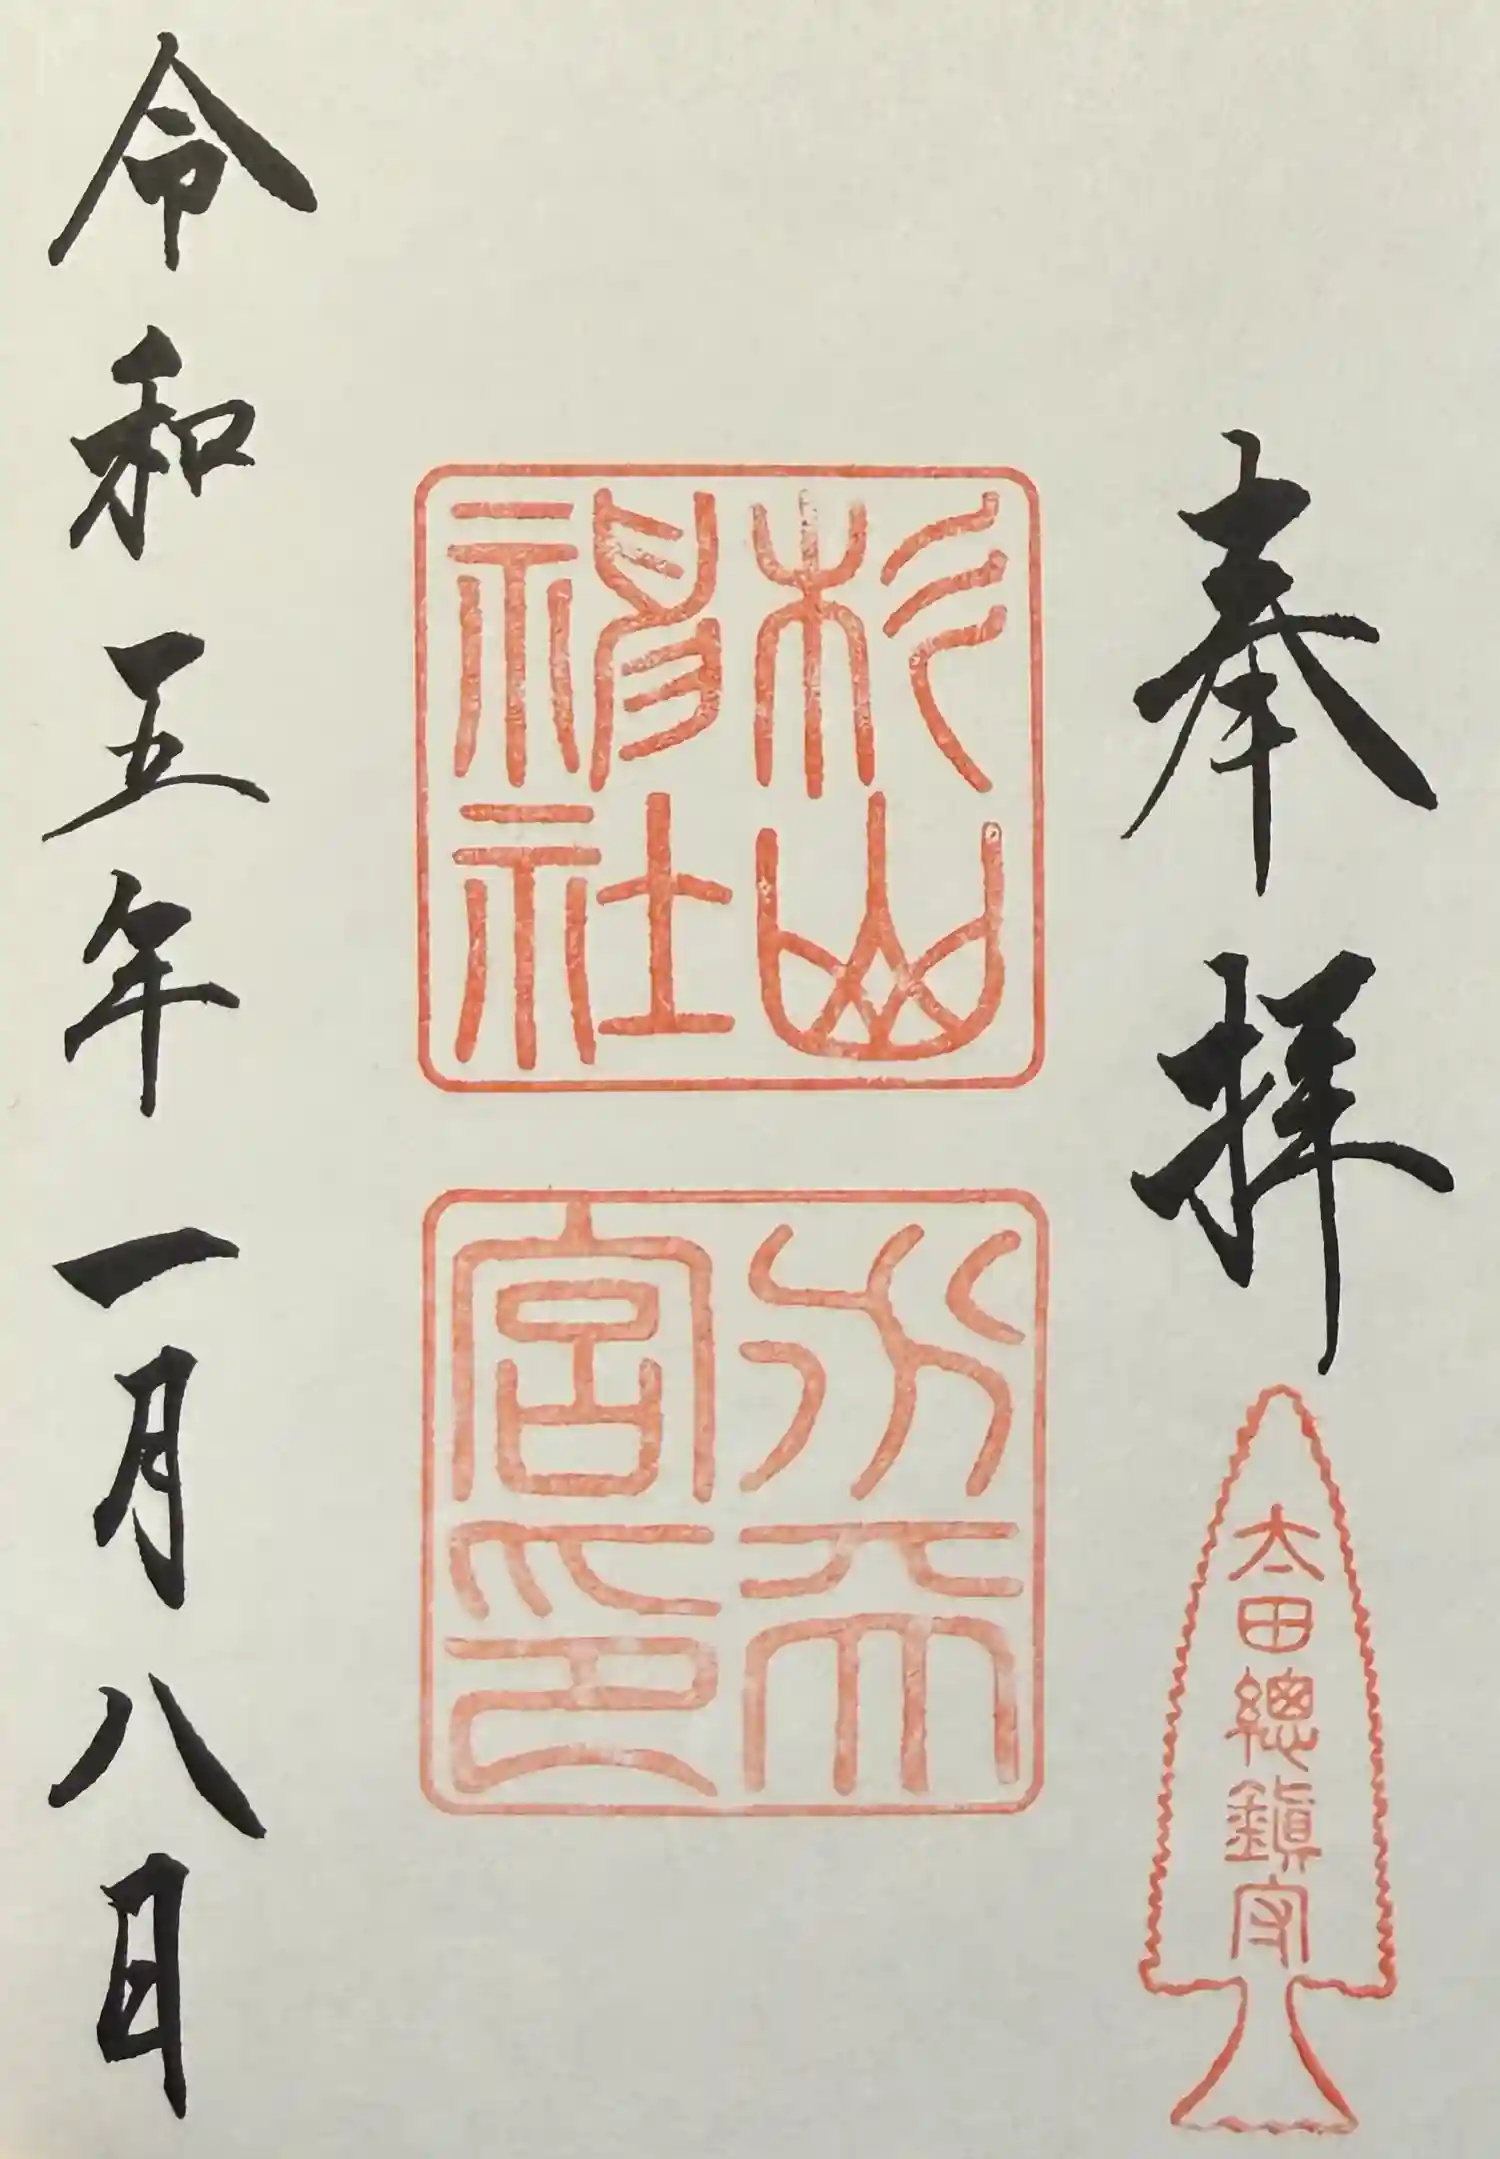 奉拝
太田總鎮守
杉山
神社
水天
宮印
令和五年一月八日